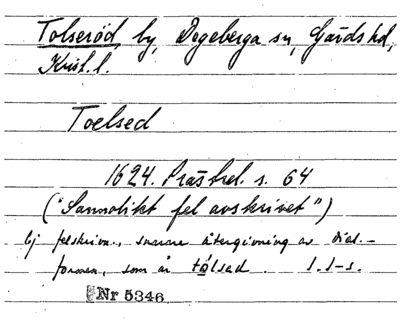 Tolseröd by, Degeberga sn, Gärds hd,
Krist. l.
Toelsed
1624. Prästrel. s. 64
("Sannolikt fel avskrivet")
Ej felskrivn., snarare återgivning av dial.-
formen, som är tålsad. I. I-s.
Nr 5346